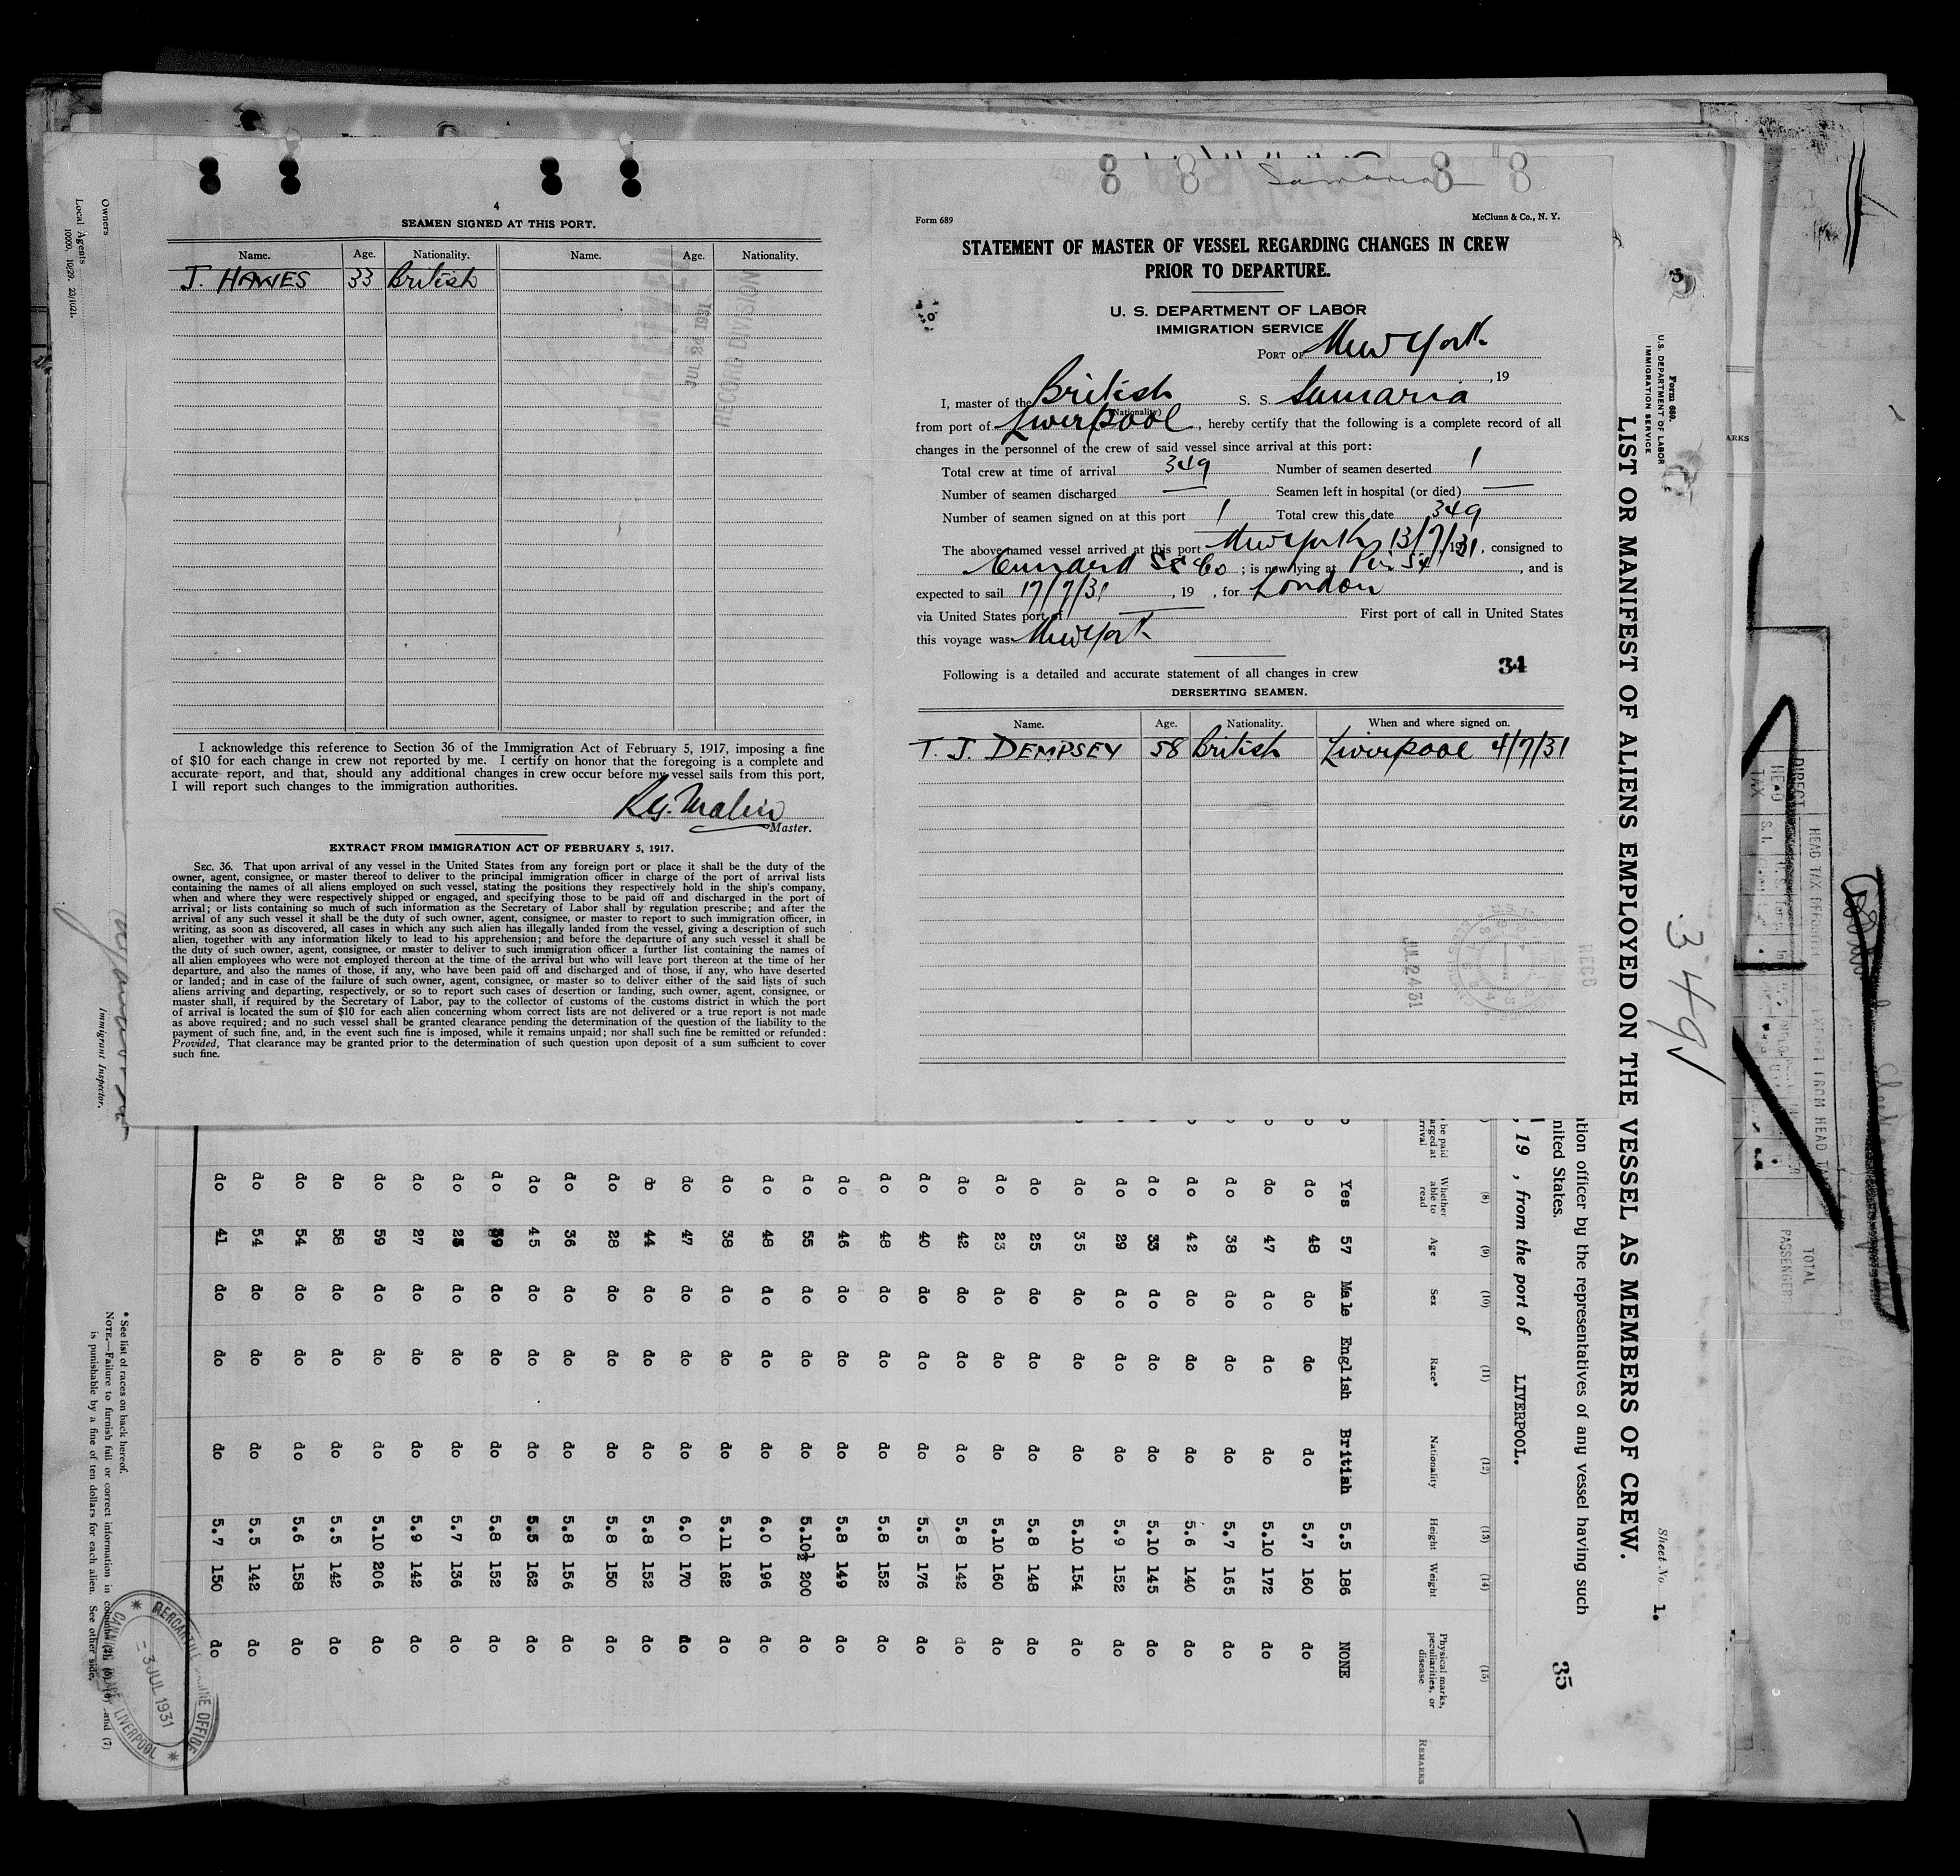 4
SEAMEN SIGNED AT THIS PORT.
Name. Age. Nationality. Name. Age. Nationality.
J. HAWES 33 British
JUL 24 1931
RECORD DIVISION
I acknowledge this reference to Section 36 of the Immigration Act of February 5, 1917, imposing a fine
of $10 for each change in crew not reported by me. I certify on honor that the foregoing is a complete and
accurate report, and that, should any additional changes in crew occur before my vessel sails from this port,
I will report such changes to the immigration authorities.
R.G. Malin
Master.
EXTRACT FROM IMMIGRATION ACT OF FEBRUARY 5, 1917.
SEC. 36. That upon arrival of any vessel in the United States from any foreign port or place it shall be the duty of the
owner, agent, consignee, or master thereof to deliver to the principal immigration officer in charge of the port of arrival lists
containing the names of all aliens employed on such vessel, stating the positions they respectively hold in the ship's company,
when and where they were respectively shipped or engaged, and specifying those to be paid off and discharged in the port of
arrival; or lists containing so much of such information as the Secretary of Labor shall by regulation prescribe; and after the
arrival of any such vessel it shall be the duty of such owner, agent, consignee, or master to report to such immigration officer, in
writing, as soon as discovered, all cases in which any such alien has illegally landed from the vessel, giving a description of such
alien, together with any information likely to lead to his apprehension; and before the departure of any such vessel it shall be
the duty of such owner, agent, consignee, or master to deliver to such immigration officer a further list containing the names of
all alien employees who were not employed thereon at the time of the arrival but who will leave port thereon at the time of her
departure, and also the names of those, if any, who have been paid off and discharged and of those, if any, who have deserted
or landed; and in case of the failure of such owner, agent, consignee, or master so to deliver either of the said lists of such
aliens arriving and departing, respectively, or so to report such cases of desertion or landing, such owner, agent, consignee, or
master shall, if required by the Secretary of Labor, pay to the collector of customs of the customs district in which the port
of arrival is located the sum of $10 for each alien concerning whom correct lists are not delivered or a true report is not made
as above required; and no such vessel shall be granted clearance pending the determination of the question of the liability to the
payment of such fine, and, in the event such fine is imposed, while it remains unpaid; nor shall such fine be remitted or refunded:
Provided, That clearance may be granted prior to the determination of such question upon deposit of a sum sufficient to cover
such fine.
Samaria
Form 689 McClunn & Co., N. Y.
STATEMENT OF MASTER OF VESSEL REGARDING CHANGES IN CREW
PRIOR TO DEPARTURE.
U. S. DEPARTMENT OF LABOR
IMMIGRATION SERVICE
PORT OF New York
, 19
I, master of the British S. S. Samaria
(Nationality)
from port of Liverpool, hereby certify that the following is a complete record of all
changes in the personnel of the crew of said vessel since arrival at this port:
Total crew at time of arrival 349 Number of seamen deserted 1
Number of seamen discharged — Seamen left in hospital (or died) —
Number of seamen signed on at this port 1 Total crew this date 349
The above named vessel arrived at this port New York 13/7/31, consigned to
Cunard SS Co; is now lying at Pier 54, and is
expected to sail 17/7/31, 19 , for London
via United States port of — First port of call in United States
this voyage was New York
34
Following is a detailed and accurate statement of all changes in crew
DERSERTING SEAMEN.
Name. Age. Nationality. When and where signed on.
T. J. DEMPSEY 58 British Liverpool 4/7/31
JUL 24 31
RECD
Form 680.
U.S. DEPARTMENT OF LABOR
IMMIGRATION SERVICE
LIST OR MANIFEST OF ALIENS EMPLOYED ON THE VESSEL AS MEMBERS OF CREW.
Sheet No. 1.
349
35
tion officer by the representatives of any vessel having such
nited States.
, 19 , from the port of LIVERPOOL.
(8) (9) (10) (11) (12) (13) (14) (15)
be paid
arged at
rrival
Whether able to read Age Sex Race* Nationality Height Weight Physical marks, peculiarities, or disease REMARKS
Yes 57 Male English British 5.5 186 NONE
do 48 do do do 5.7 160 do
do 47 do do do 5.10 172 do
do 38 do do do 5.7 165 do
do 42 do do do 5.6 140 do
do 33 do do do 5.10 145 do
do 29 do do do 5.9 152 do
do 35 do do do 5.10 154 do
do 25 do do do 5.8 148 do
do 23 do do do 5.10 160 do
do 42 do do do 5.8 142 do
do 40 do do do 5.5 176 do
do 48 do do do 5.8 152 do
do 46 do do do 5.8 149 do
do 55 do do do 5.10½ 200 do
do 48 do do do 6.0 196 do
do 38 do do do 5.11 162 do
do 47 do do do 6.0 170 do
do 44 do do do 5.8 152 do
do 28 do do do 5.8 150 do
do 36 do do do 5.8 156 do
do 45 do do do 5.5 162 do
do 39 do do do 5.8 152 do
do 25 do do do 5.7 136 do
do 27 do do do 5.9 142 do
do 59 do do do 5.10 206 do
do 58 do do do 5.5 142 do
do 54 do do do 5.6 158 do
do 54 do do do 5.5 142 do
do 41 do do do 5.7 150 do
* See list of races on back hereof.
NOTE.—Failure to furnish full or correct information in columns (2), (5), (6) and (7)
is punishable by a fine of ten dollars for each alien. See other side.
Immigrant Inspector.
Owners
Local Agents
10000. 10/29. 23/1021.
MERCANTILE MARINE OFFICE
3 JUL 1931
CANNING PLACE LIVERPOOL
DIRECT
HEAD
TAX
TOTAL
PASSENGER
ARKS